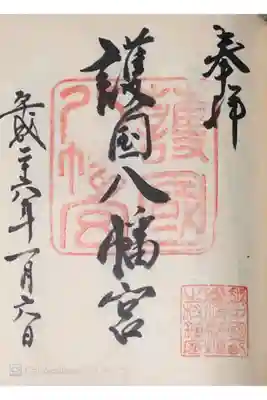 奉拝
護国八幡宮
平成二十六年一月六日
護國
八幡宮